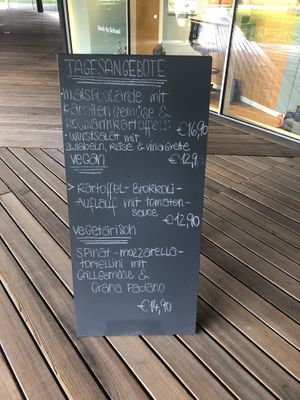 TAGESANGEBOTE
- Maispoularde mit
Karottengemüse &
Rosmarinkartoffeln
€16,90
- Wurstsalat mit
Zwiebeln, Käse & Vinaigrette
€12,9
Vegan
> Kartoffel-Brokkoli-
Auflauf mit Tomaten-
sauce
€12,90
Vegetarisch
Spinat-Mozzarella-
Tortellini mit
Grillgemüse &
Grana Padano
€14,90
Back to School